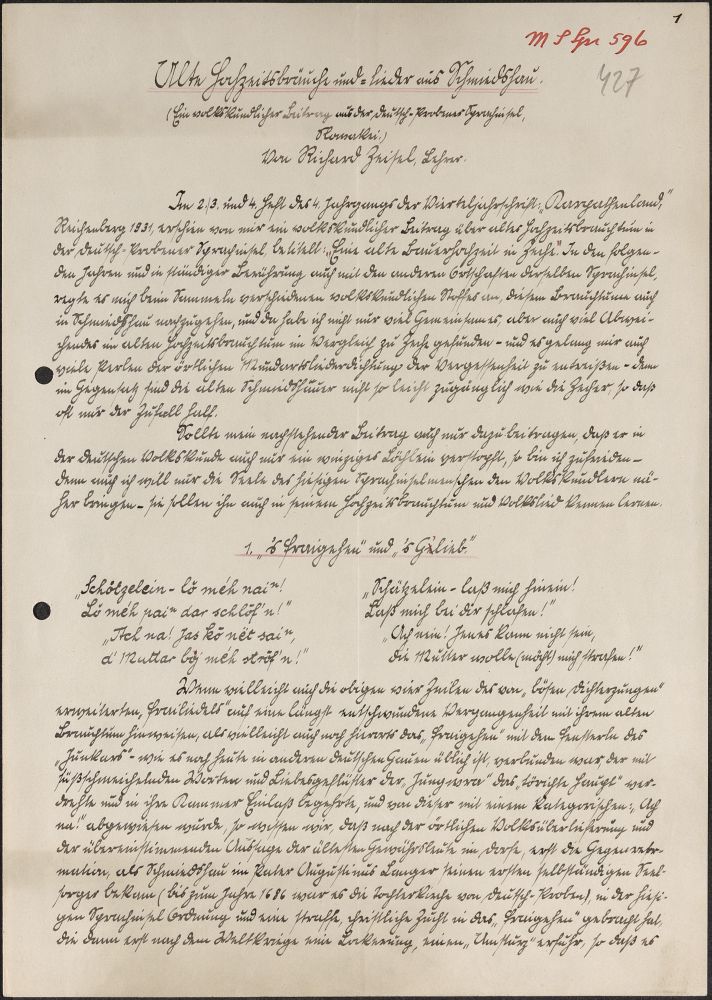 1
M S Gu 596
427
Alte Hochzeitsbräuche und =lieder aus Schmiedshau.
(Ein volkskundlicher Beitrag aus der Deutsch-Probener Sprachinsel,
Slowakei.)
Von Richard Zeisel, Lehrer.
Im 2./3. und 4. Heft des 4. Jahrgangs der Vierteljahrschrift: „Karpathenland,"
Reichenberg 1931, erschien von mir ein volkskundlicher Beitrag über altes Hochzeitsbrauchtum in
der Deutsch-Probener Sprachinsel, betitelt: „Eine alte Bauernhochzeit in Zeche." In den folgen-
den Jahren und in ständiger Berührung auch mit den anderen Ortschaften derselben Sprachinsel,
regte es mich beim Sammeln verschiedenen volkskundlichen Stoffes an, diesem Brauchtume auch
in Schmiedshau nachzugehen, und da habe ich nicht nur viel Gemeinsames, aber auch viel Abwei-
chendes im alten Hochzeitsbrauchtum im Vergleich zu Zeche gefunden - und es gelang mir auch
viele Perlen der örtlichen Mundartliederdichtung der Vergessenheit zu entreißen - denn
im Gegensatz sind die alten Schmiedshauer nicht so leicht zugänglich wie die Zecher, so daß
oft nur der Zufall half.
Sollte mein nachstehender Beitrag auch nur dazu beitragen, daß er in
der deutschen Volkskunde auch nur ein winziges Löchlein verstopft, so bin ich zufrieden -
denn auch ich will nur die Seele des hiesigen Sprachinselmenschen den Volkskundlern nä-
her bringen - sie sollen ihn auch in seinem Hochzeitsbrauchtum und Volkslied kennen lernen.
1. „'s fraigehen" und „'s Gelieb."
„Schötzelein - lö mëh nain!
Lö mëh pain dar schlöf'n!"
„Ach na! Jas kö nët sain,
d' Muttar böj mëh ströf'n!"
„Schätzelein - laß mich hinein!
Laß mich bei dir schlafen!"
„Ach nein! Jenes kann nicht sein,
die Mutter wolle (möcht) mich strafen!"
Wenn vielleicht auch die obigen vier Zeilen des von „bösen Dichterzungen"
erweiterten „Frailiedels" auf eine längst entschwundene Vergangenheit mit ihrem alten
Brauchtum hinweisen, als vielleicht auch noch hierorts das „fraigehen" mit dem Fensterln des
„Junkars" - wie es noch heute in anderen deutschen Gauen üblich ist, verbunden war, der mit
süßschmeichelnden Worten und Liebesgeflüster der „Jungwra" das „törichte Haupt" ver-
drehte und in ihre Kammer Einlaß begehrte, und von dieser mit einem kategorischen: „Ach
na!" abgewiesen wurde, so wissen wir, daß nach der örtlichen Volksüberlieferung und
der übereinstimmenden Aussage der ältesten Gewährsleute im Dorfe, erst die Gegenrefor-
mation, als Schmiedshau im Pater Augustinus Langer seinen ersten selbständigen Seel-
sorger bekam (bis zum Jahre 1686 war es die Tochterkirche von Deutsch-Proben), in der hiesi-
gen Sprachinsel Ordnung und eine straffe, christliche Zucht in das „Fraigehen" gebracht hat,
die dann erst nach dem Weltkriege eine Lockerung, einen „Umsturz" erfuhr, so daß es